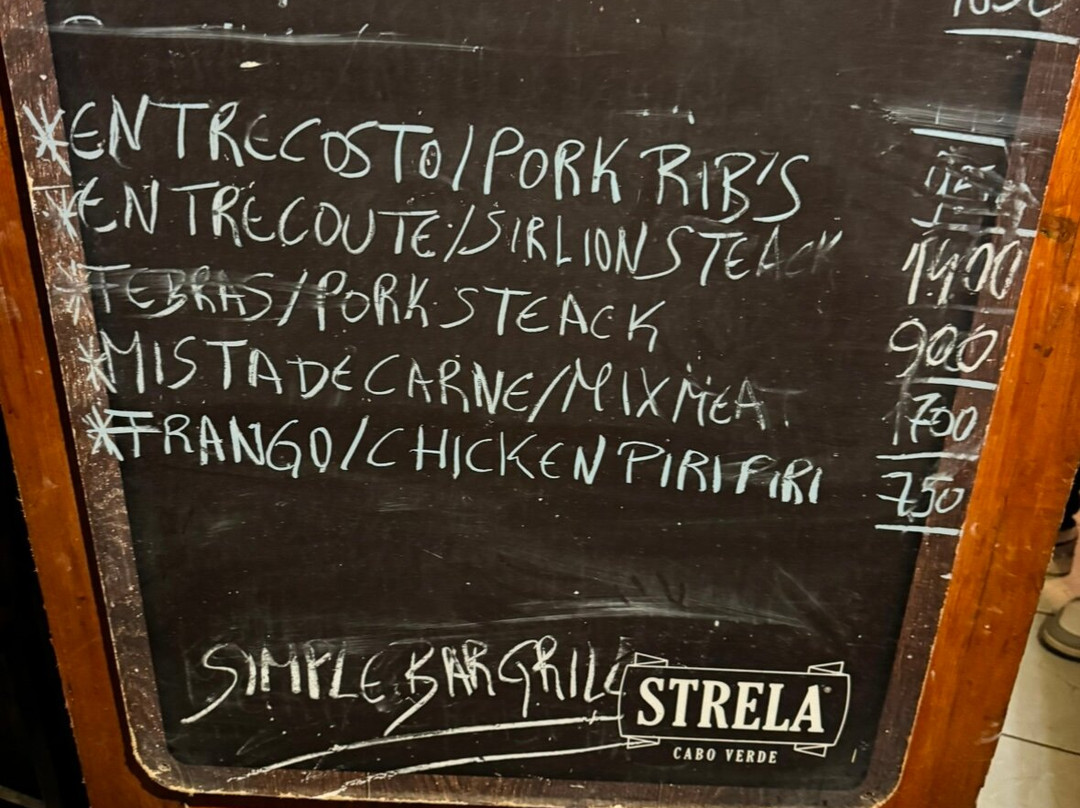 *ENTRECOSTO/PORK RIB'S
*ENTRECOUTE/SIRLION STEACK 1400
*FEBRAS/PORK STEACK 900
*MISTA DE CARNE/MIX MEAT 1700
*FRANGO/CHICKEN PIRI PIRI 750
SIMPLE BAR GRILL
STRELA
CABO VERDE